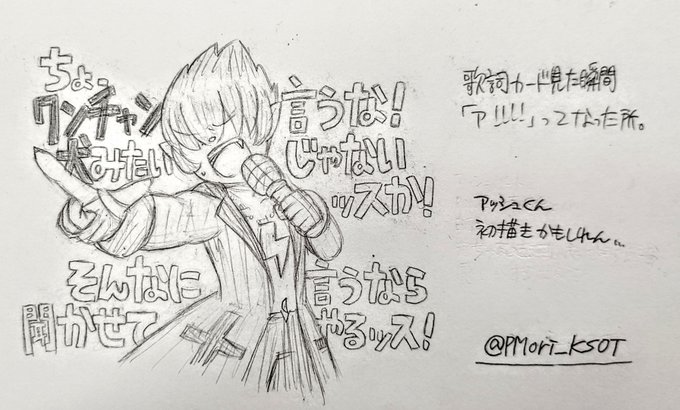 ちょ、
ワンチャン
犬みたい
言うな!
じゃない
ッスか!
そんなに
聞かせて
言うなら
やるッス!
歌詞カード見た瞬間
「ア!!!!」ってなった所。
アッシュくん
初描きかもしれん…
@PMori_KSOT